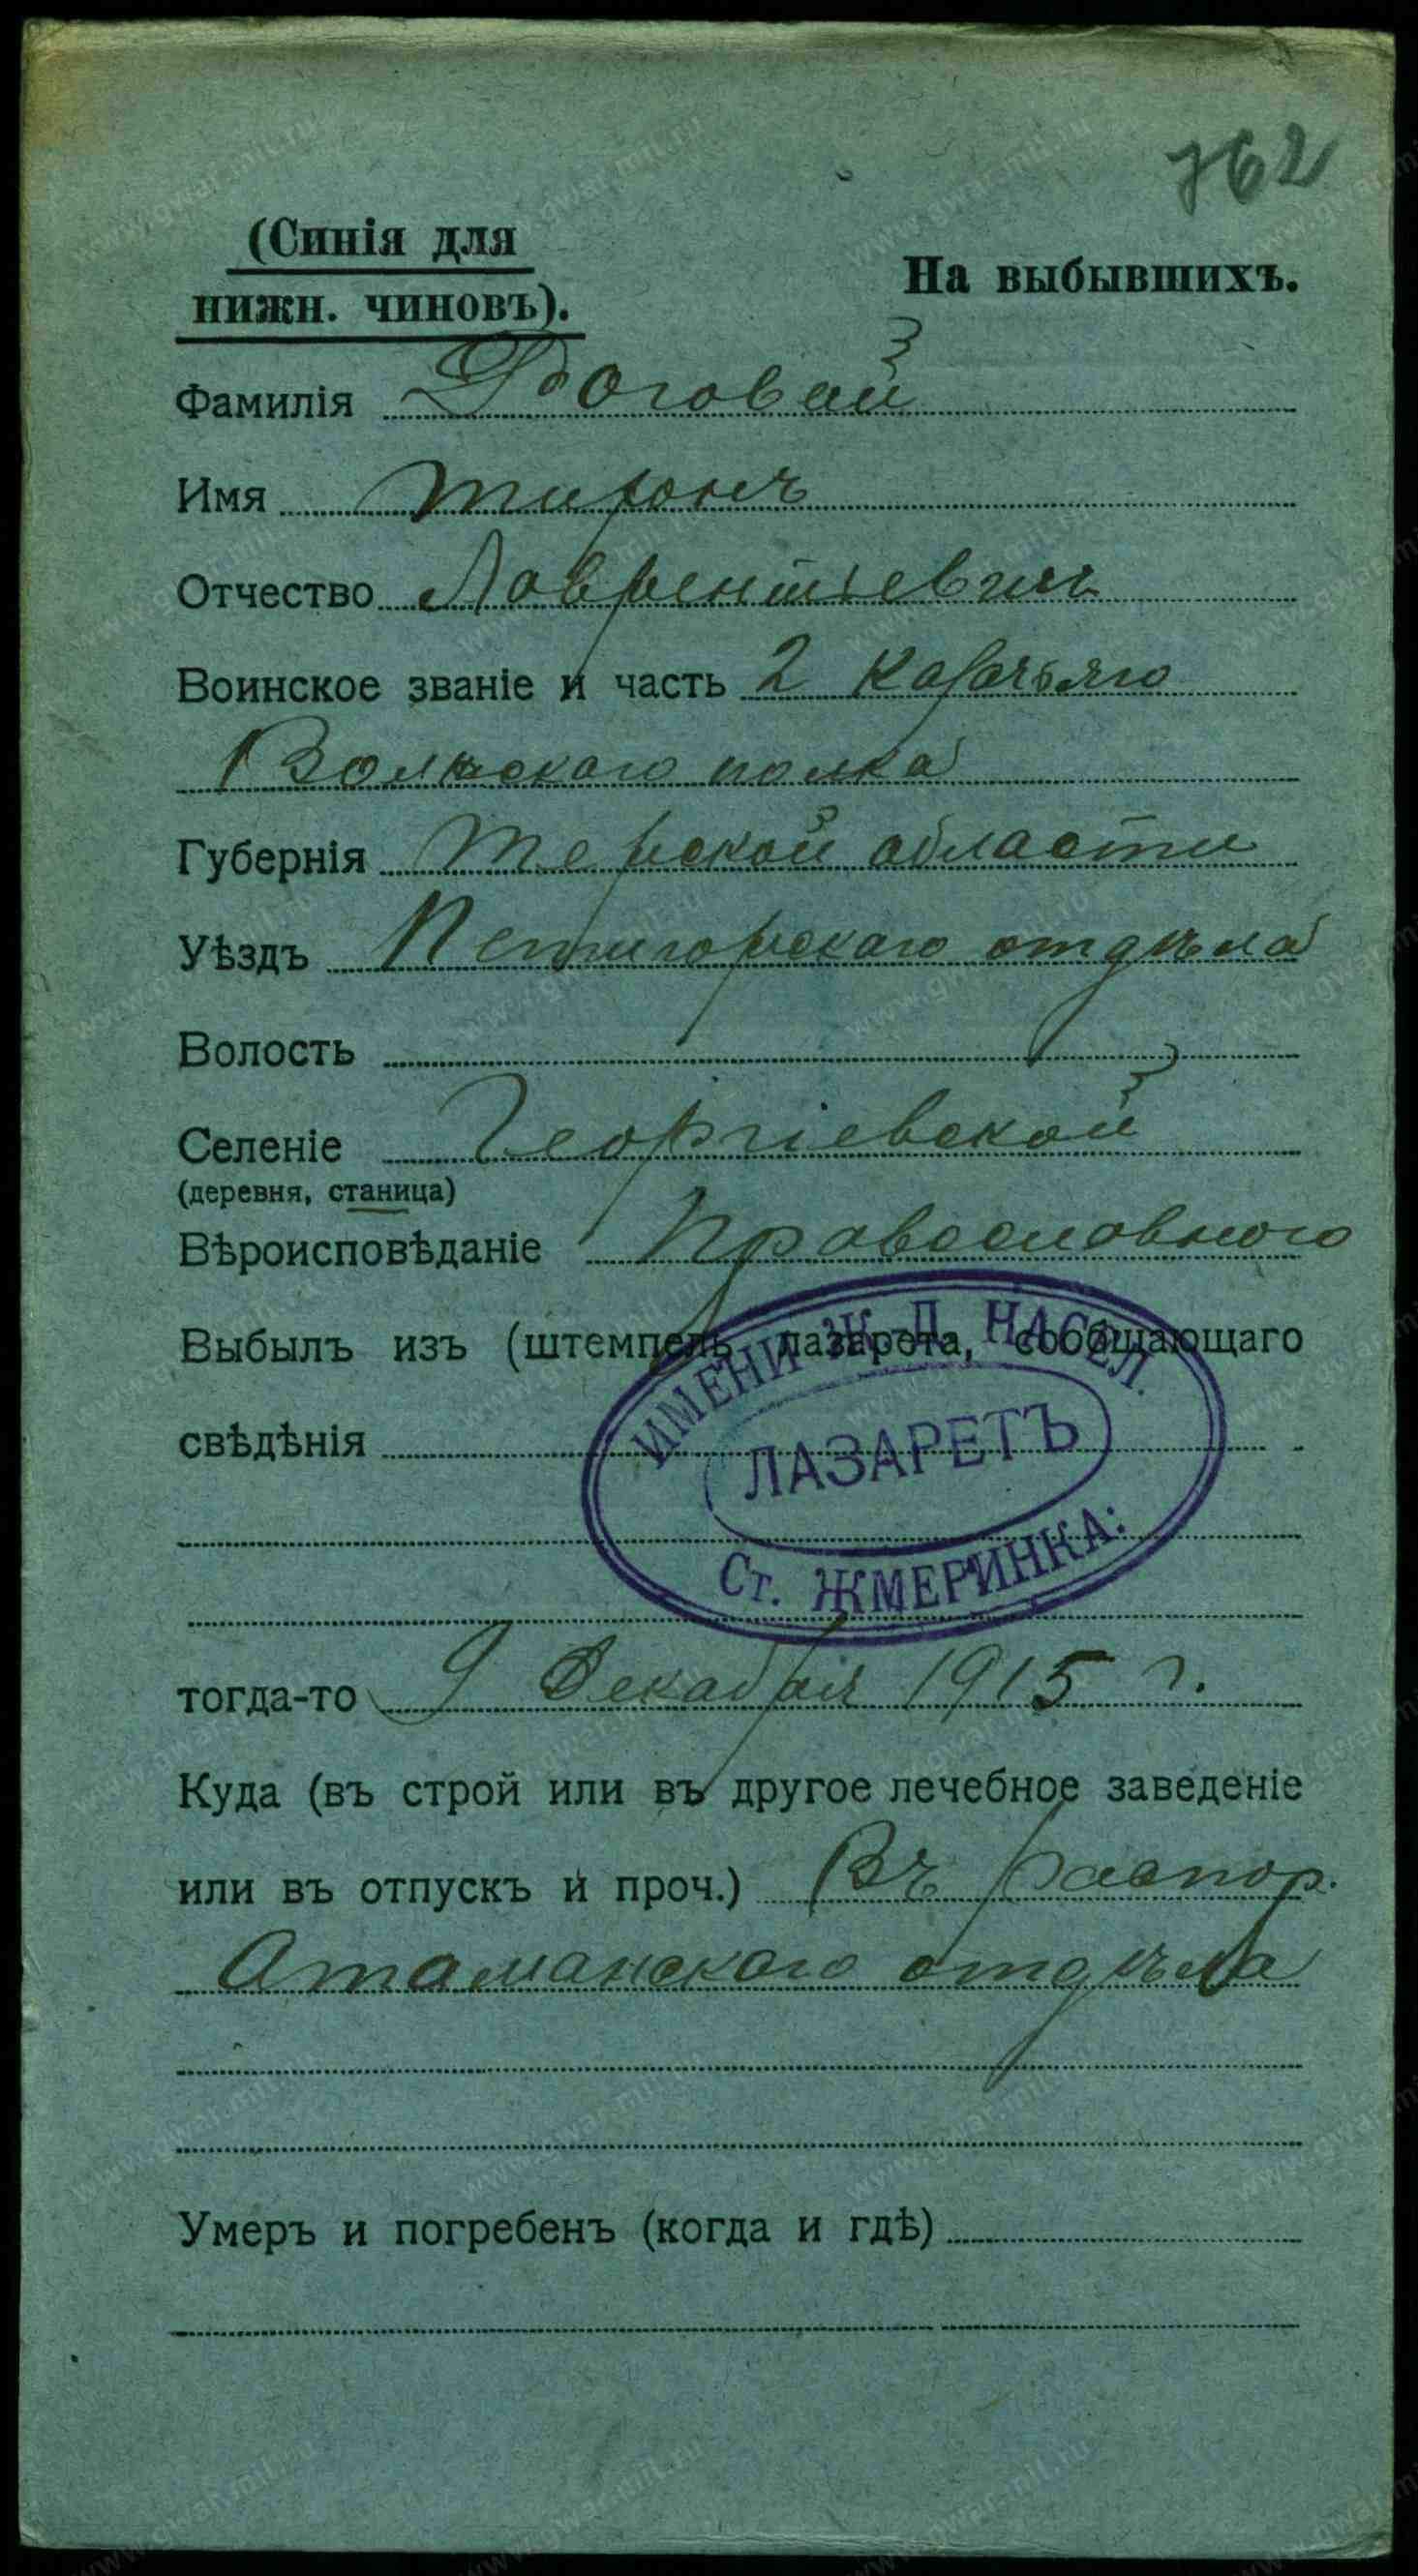 762
(Синія для
нижн. чиновъ).
На выбывшихъ.
Фамилія
Имя Тихонъ
Отчество Лаврентьевичъ
Воинское званіе и часть 2 Казачьяго
Волжского полка
Губернія Терской области
Уѣздъ Петигорскаго отдѣла
Волость
Селеніе Георгіевской
(деревня, станица)
Вѣроисповѣданіе Православного
Выбылъ изъ (штемпель лазарета, сообщающаго
свѣдѣнія
ИМЕНИ Ж.-Д. НАСЕЛ.
ЛАЗАРЕТЪ
Ст. ЖМЕРИНКА.
тогда-то 9 Декабря 1915 г.
Куда (въ строй или въ другое лечебное заведеніе
или въ отпускъ и проч.) Въ распор.
Атаманскаго отдѣла
Умеръ и погребенъ (когда и гдѣ)
www.gwar.mil.ru